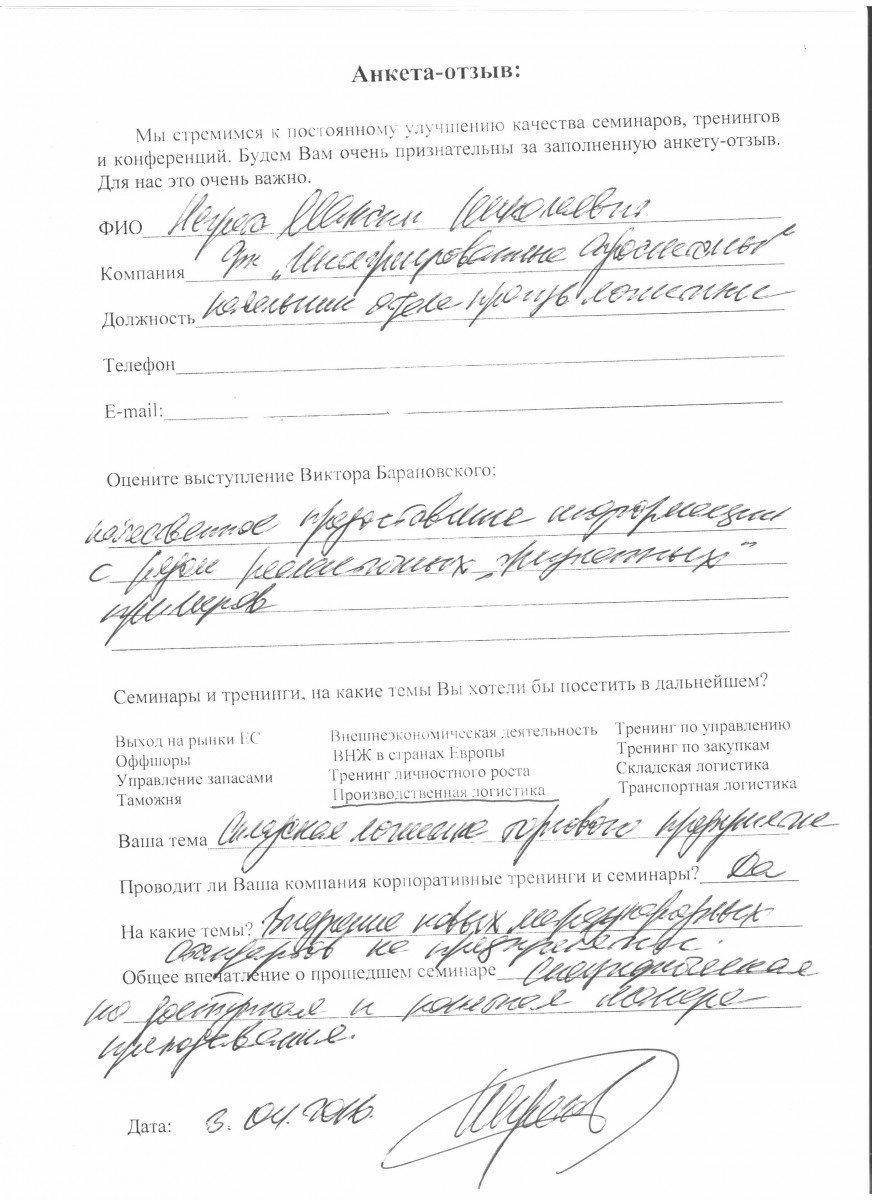 Анкета-отзыв:
Мы стремимся к постоянному улучшению качества семинаров, тренингов
и конференций. Будем Вам очень признательны за заполненную анкету-отзыв.
Для нас это очень важно.
ФИО Николаевич
Компания "Интегрированные Агросистемы"
Должность начальник отдела логистики
Телефон
E-mail:
Оцените выступление Виктора Барановского:
качественное предоставление информации
с рядом реалистичных "жизненных"
примеров
Семинары и тренинги, на какие темы Вы хотели бы посетить в дальнейшем?
Выход на рынки ЕС Внешнеэкономическая деятельность Тренинг по управлению
Оффшоры ВНЖ в странах Европы Тренинг по закупкам
Управление запасами Тренинг личностного роста Складская логистика
Таможня Производственная логистика Транспортная логистика
Ваша тема Складская логистика торгового предприятия
Проводит ли Ваша компания корпоративные тренинги и семинары? Да
На какие темы? Внедрение новых международных
стандартов на предприятии.
Общее впечатление о прошедшем семинаре Специфическая
но доступная и понятная манера
преподавания.
Дата: 3.04.2016